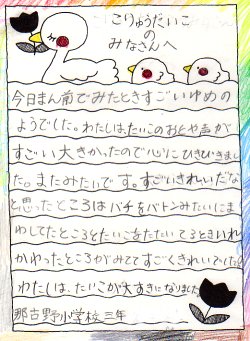 こりゅうだいこ
の
みなさんへ
今日まん前でみたときすごいゆめの
ようでした。わたしは、たいこのおとや声が
すごい大きかったので心にひきびきました
た。またみたいです。すごいきれいだな
と思ったところはバチをバトンみたいにま
わしてたところとたいこをたたいてるときいれ
かわったところがみててすごくきれいでした。
わたしは、たいこが大すきになりました。
那古野小学校三年